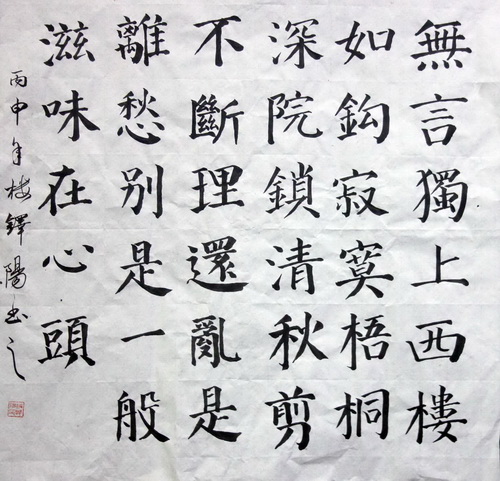 無言獨上西樓
如鈎寂寞梧桐
深院鎖清秋剪
不斷理還亂是
離愁别是一般
滋味在心頭
丙申年梅鐸陽书之